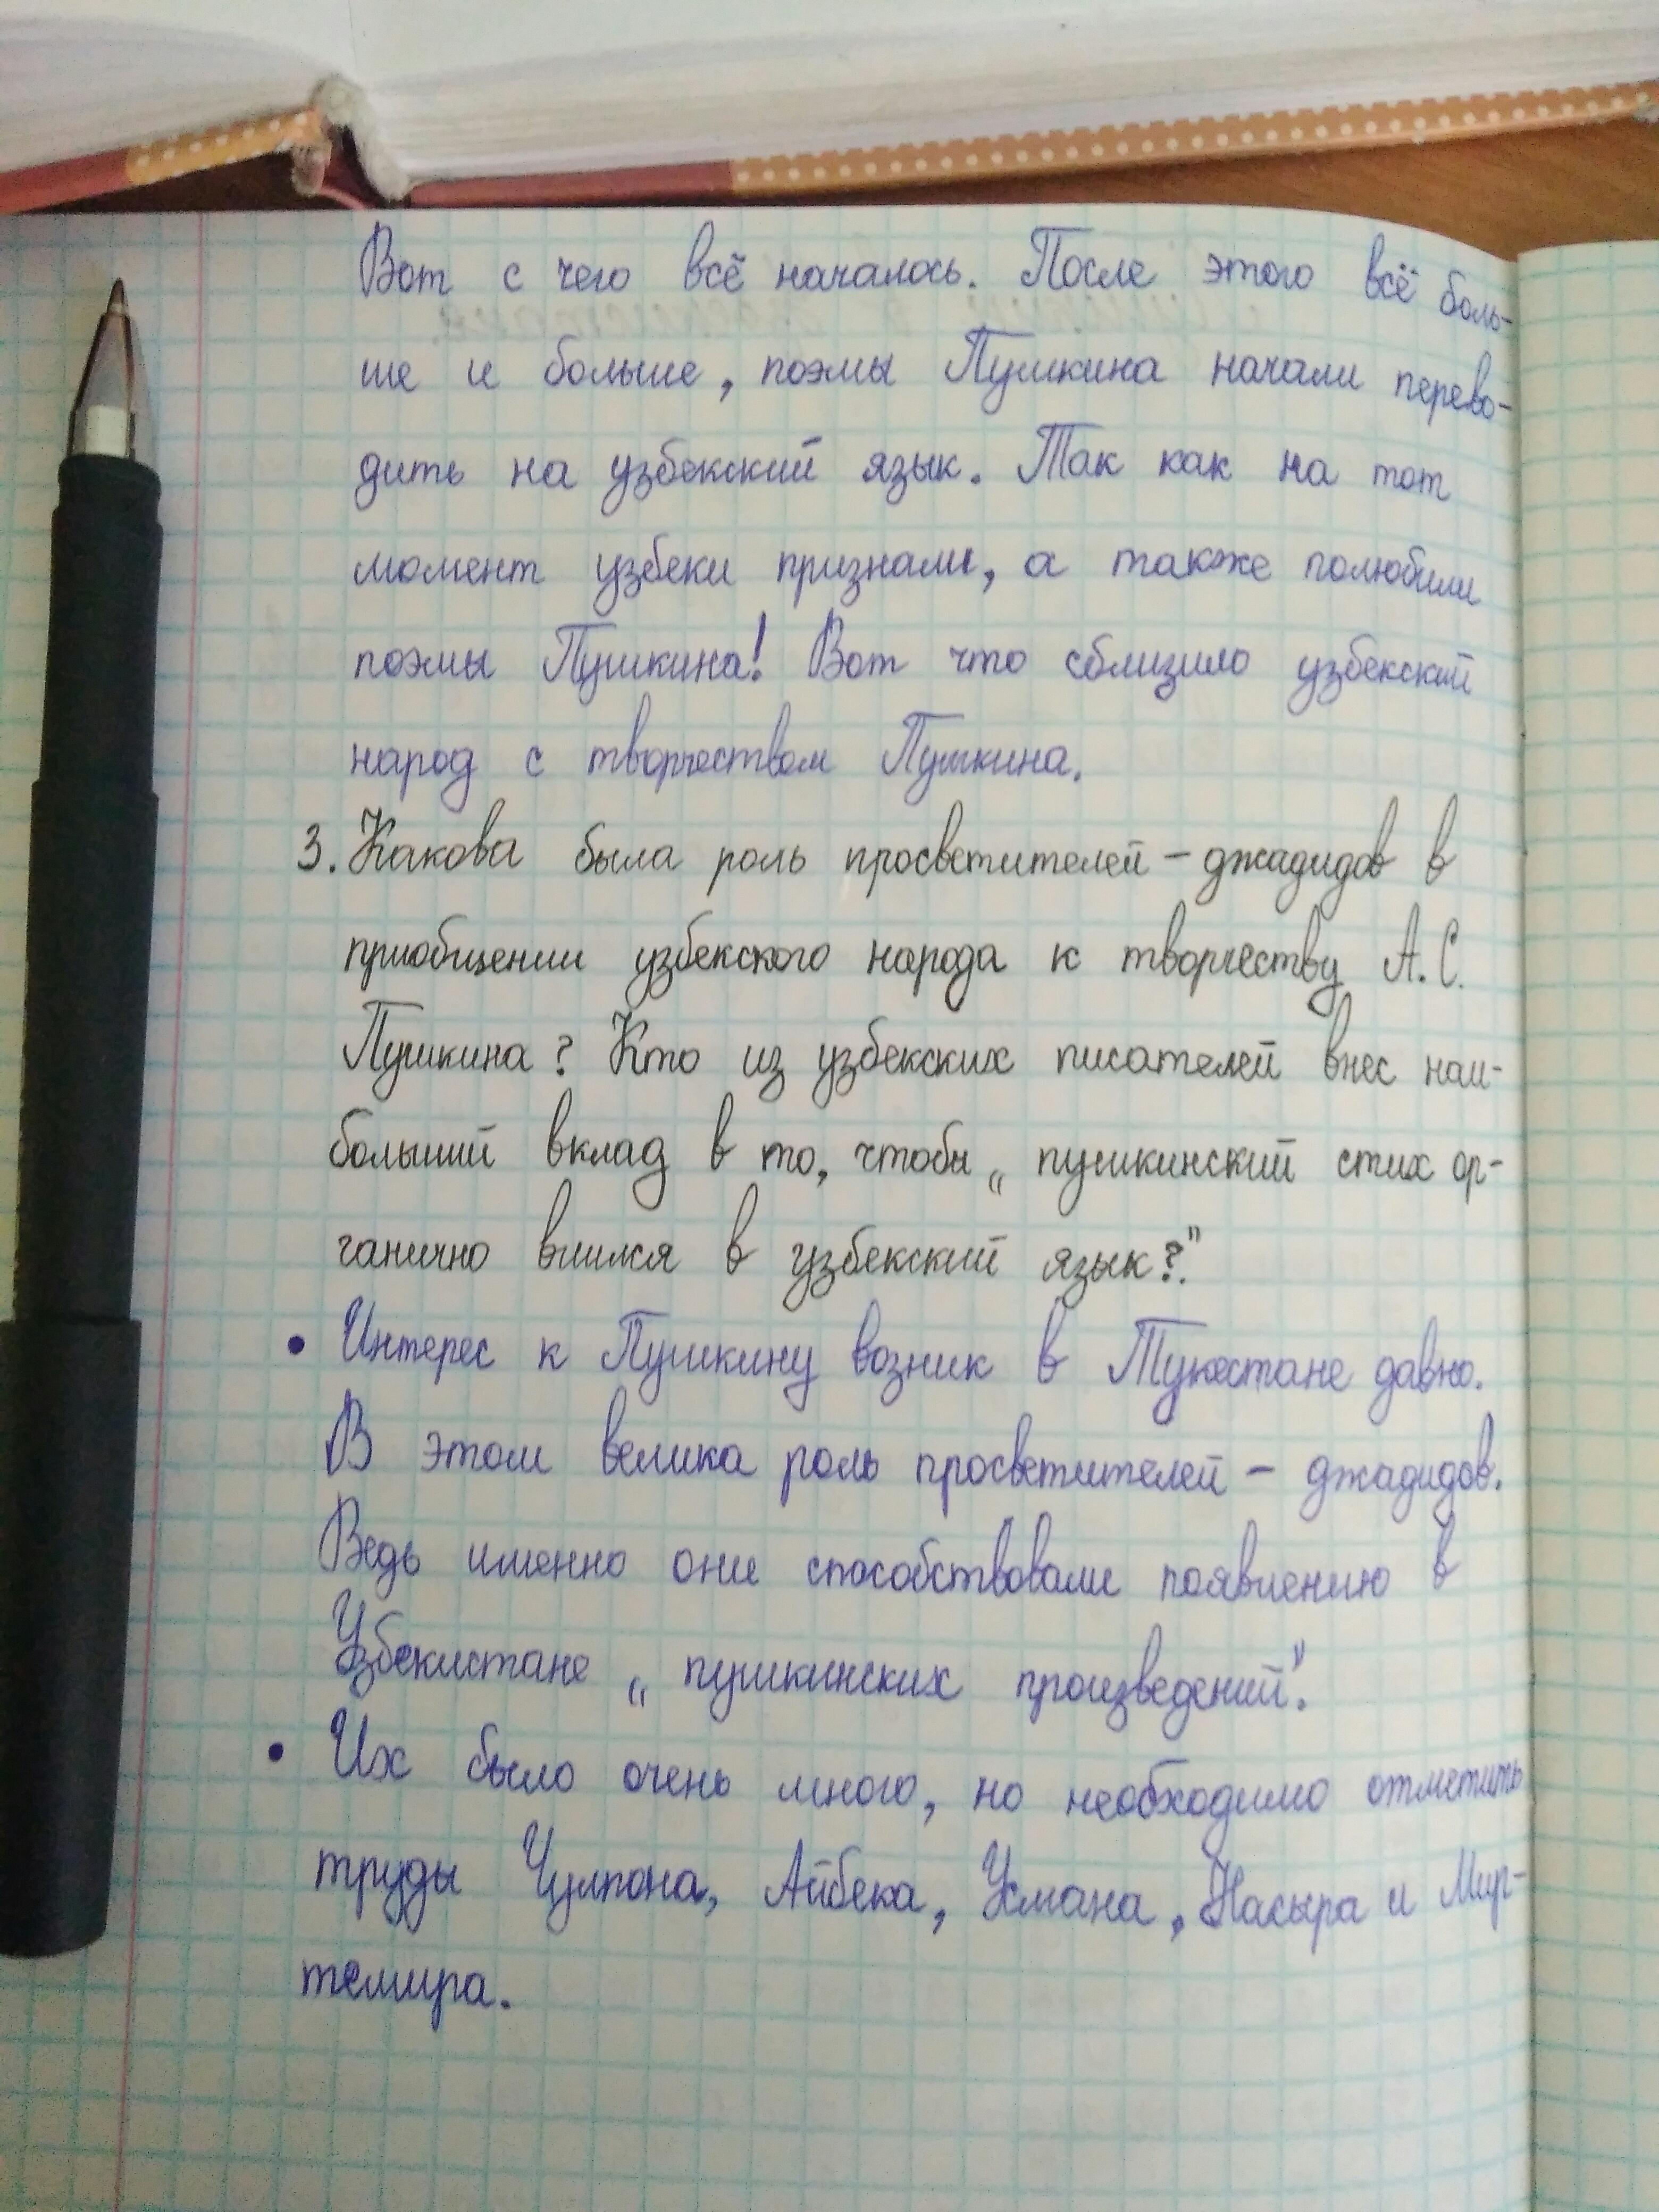 Вот с чего всё началось. После этого всё боль-
ше и больше, поэмы Пушкина начали перево-
дить на узбекский язык. Так как на тот
момент узбеки признали, а также полюбили
поэмы Пушкина! Вот что сблизило узбекский
народ с творчеством Пушкина.
3. Какова была роль просветителей - джадидов в
приобщении узбекского народа к творчеству А.С.
Пушкина? Кто из узбекских писателей внес наи-
больший вклад в то, чтобы „ пушкинский стих ор-
ганично влился в узбекский язык?".
• Интерес к Пушкину возник в Тукестане давно.
В этом велика роль просветителей - джадидов.
Ведь именно они способствовали появлению в
Узбекистане „ пушкинских произведений".
• Их было очень много, но необходимо отметить
труды Чулпона, Айбека, Усмана, Насыра и Мир-
темира.